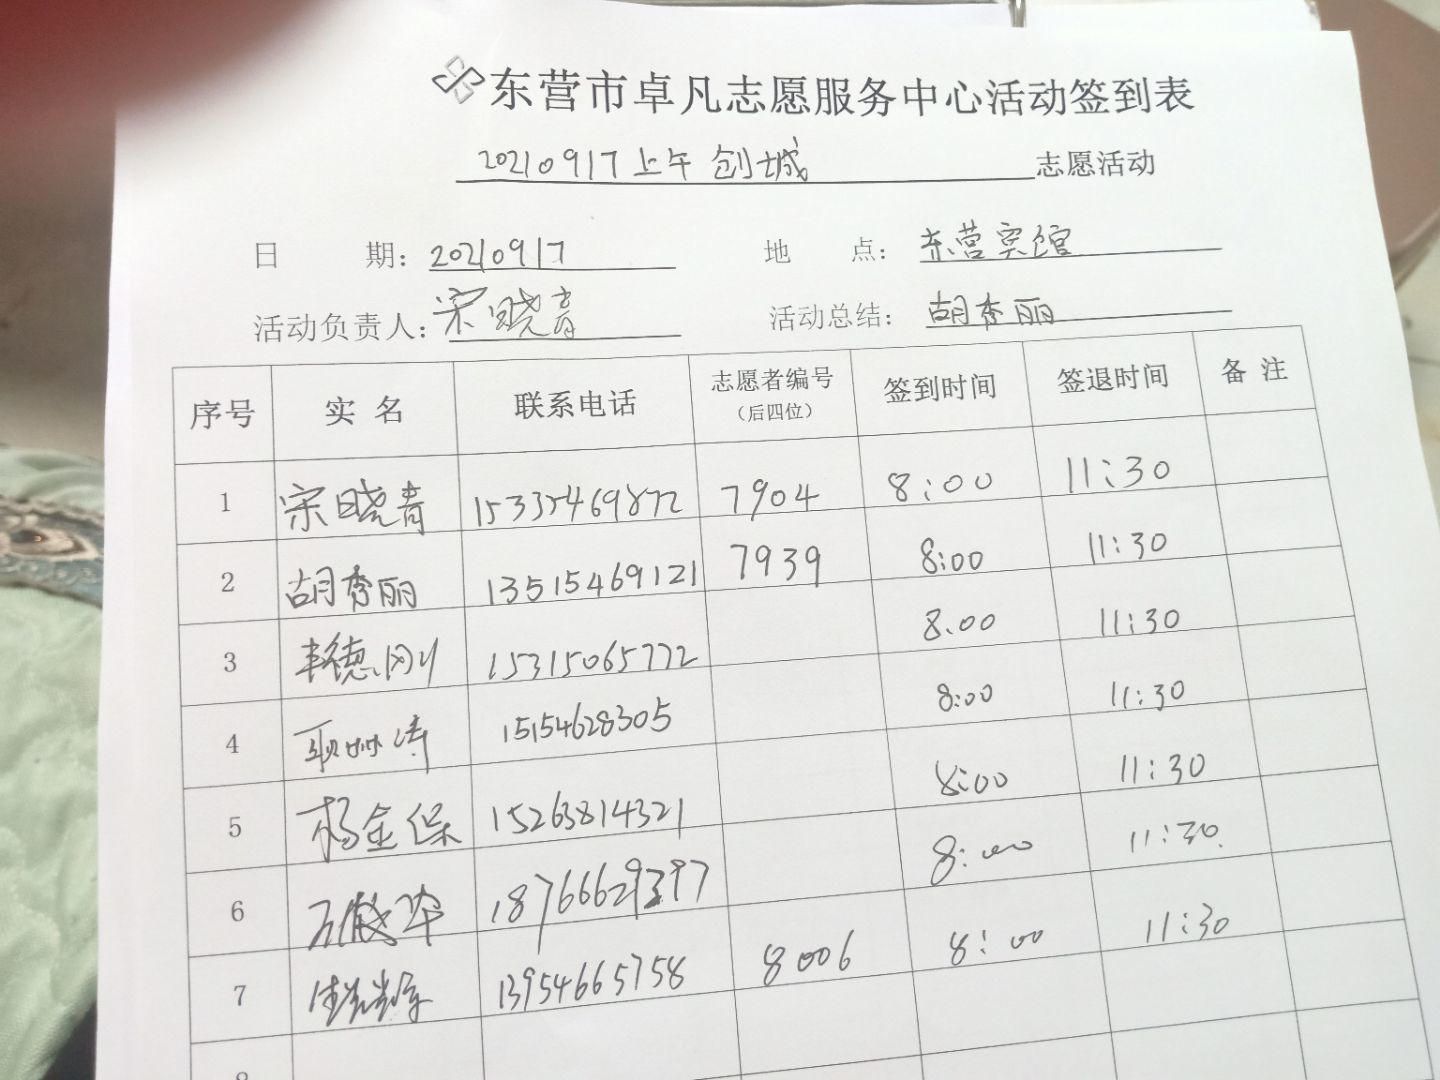 东营市卓凡志愿服务中心活动签到表
20210917上午 创城 志愿活动
日 期：20210917 地 点：东营宾馆
活动负责人：宋晓青 活动总结：胡秀丽
序号 实名 联系电话 志愿者编号（后四位） 签到时间 签退时间 备注
1 宋晓青 15335469872 7904 8:00 11:30
2 胡秀丽 13515469121 7939 8:00 11:30
3 德刚 15315065772 8.00 11:30
4 15154628305 8:00 11:30
5 杨金保 15263814321 8:00 11:30
6 18766629397 8:00 11:30
7 13954665758 8006 8:00 11:30
8